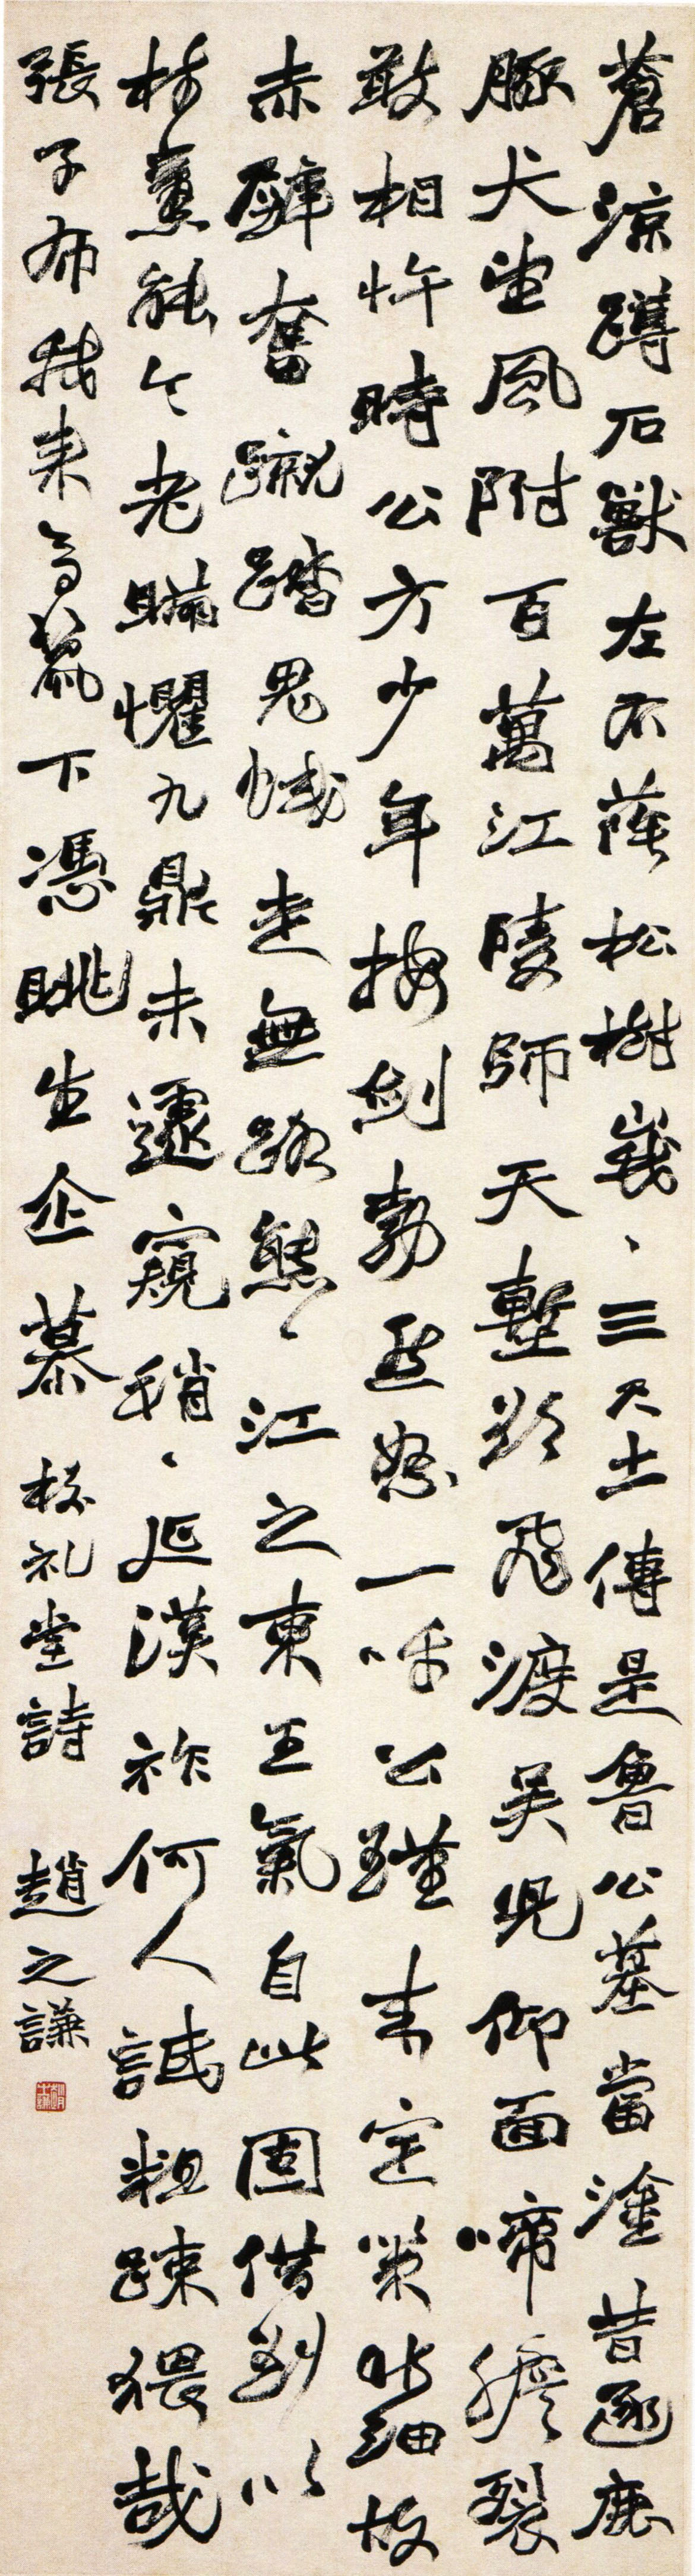 蒼涼蹲石獸左右蔭松樹峩〻三尺土傳是魯公墓當塗昔逐鹿
豚犬望風附百萬江陵師天塹欲飛渡吳兒仰面啼膽裂
敢相忤時公方少年按劍勃然怒一呼公瑾来定策細故
赤壁奮蹴踏鬼蜮走無路熊〻江之東王氣自此固借荊以
樹黨能令老瞞懼九鼎未遽窺稍〻延漢祚何人詆粗踈猥哉
張子布我来高冢下憑眺生企慕 校礼堂詩 趙之謙